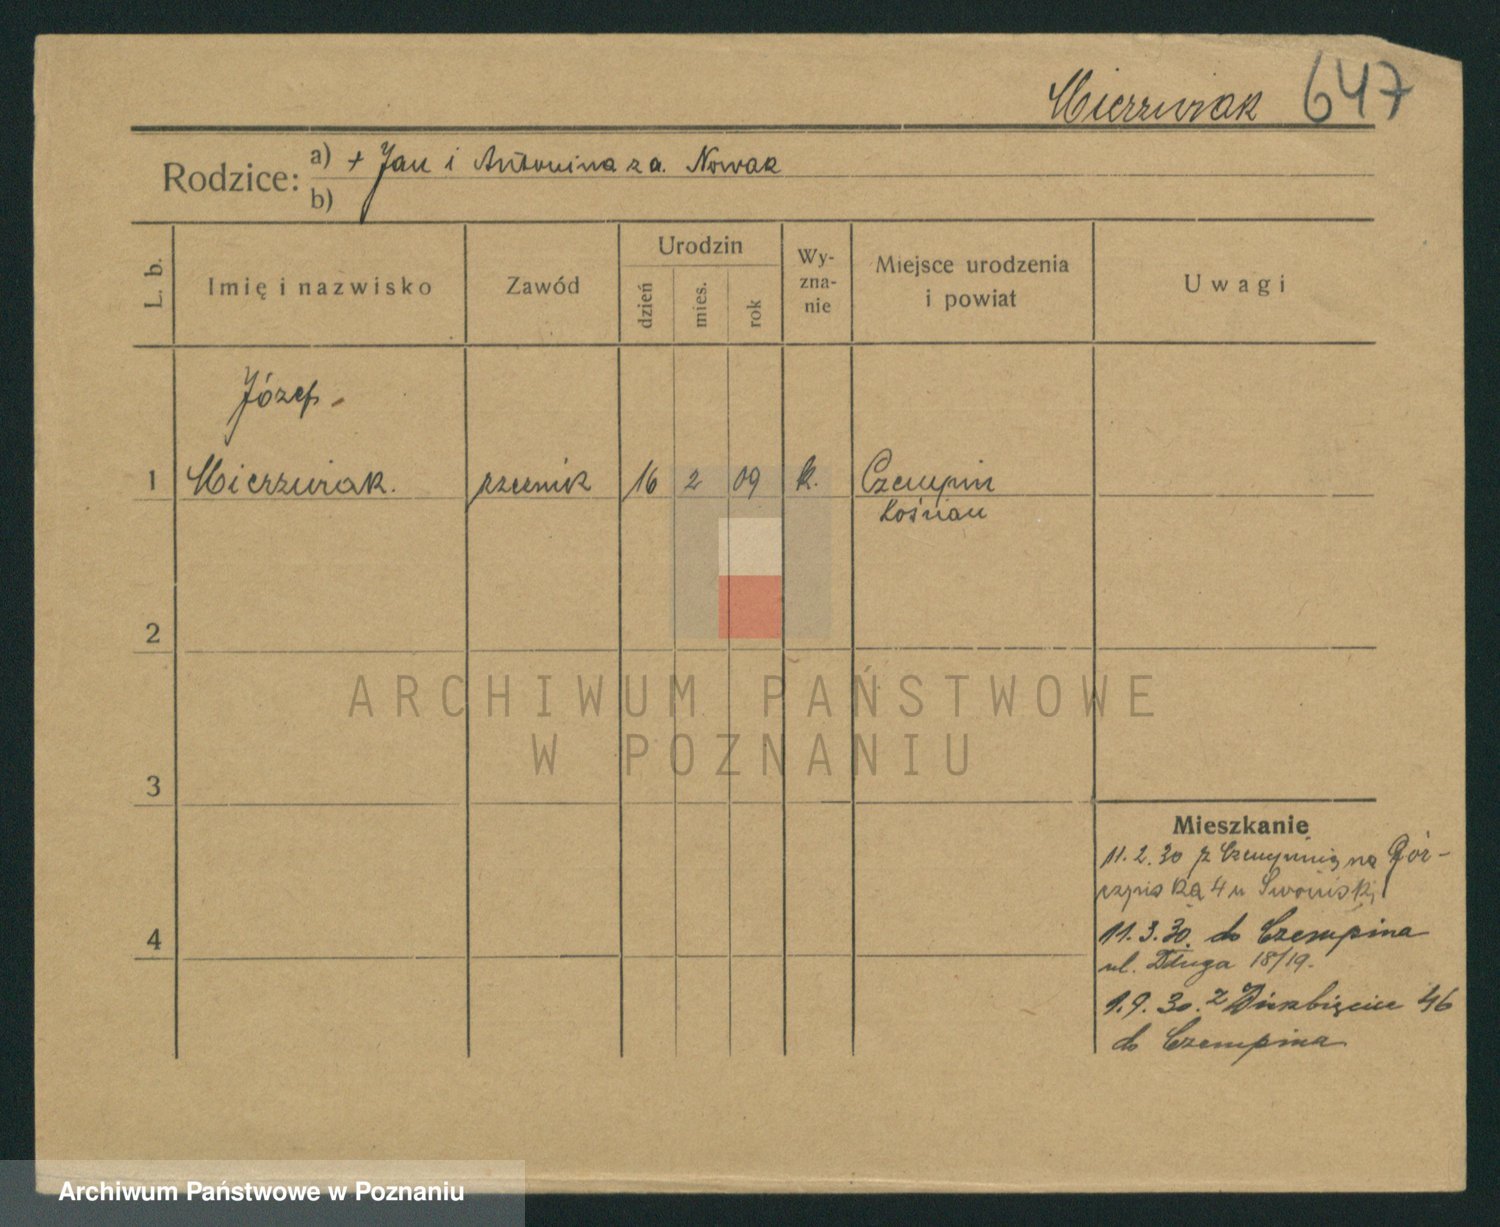 Mierzwiak 647
Rodzice: a) + Jan i Antonina z d. Nowak
b)
L. b.
Imię i nazwisko
Zawód
Urodzin
dzień
mies.
rok
Wy-
zna-
nie
Miejsce urodzenia
i powiat
Uwagi
Józef
1 Mierzwiak. rzeźnik 16 2 09 k. Czempin
Kościan
2
3
4
ARCHIWUM PAŃSTWOWE
W POZNANIU
Mieszkanie
11.2.30 z Czempinia na
4 u
11.3.30. do Czempina
ul. Długa 18/19.
1.9.30. z 46
do Czempina
Archiwum Państwowe w Poznaniu